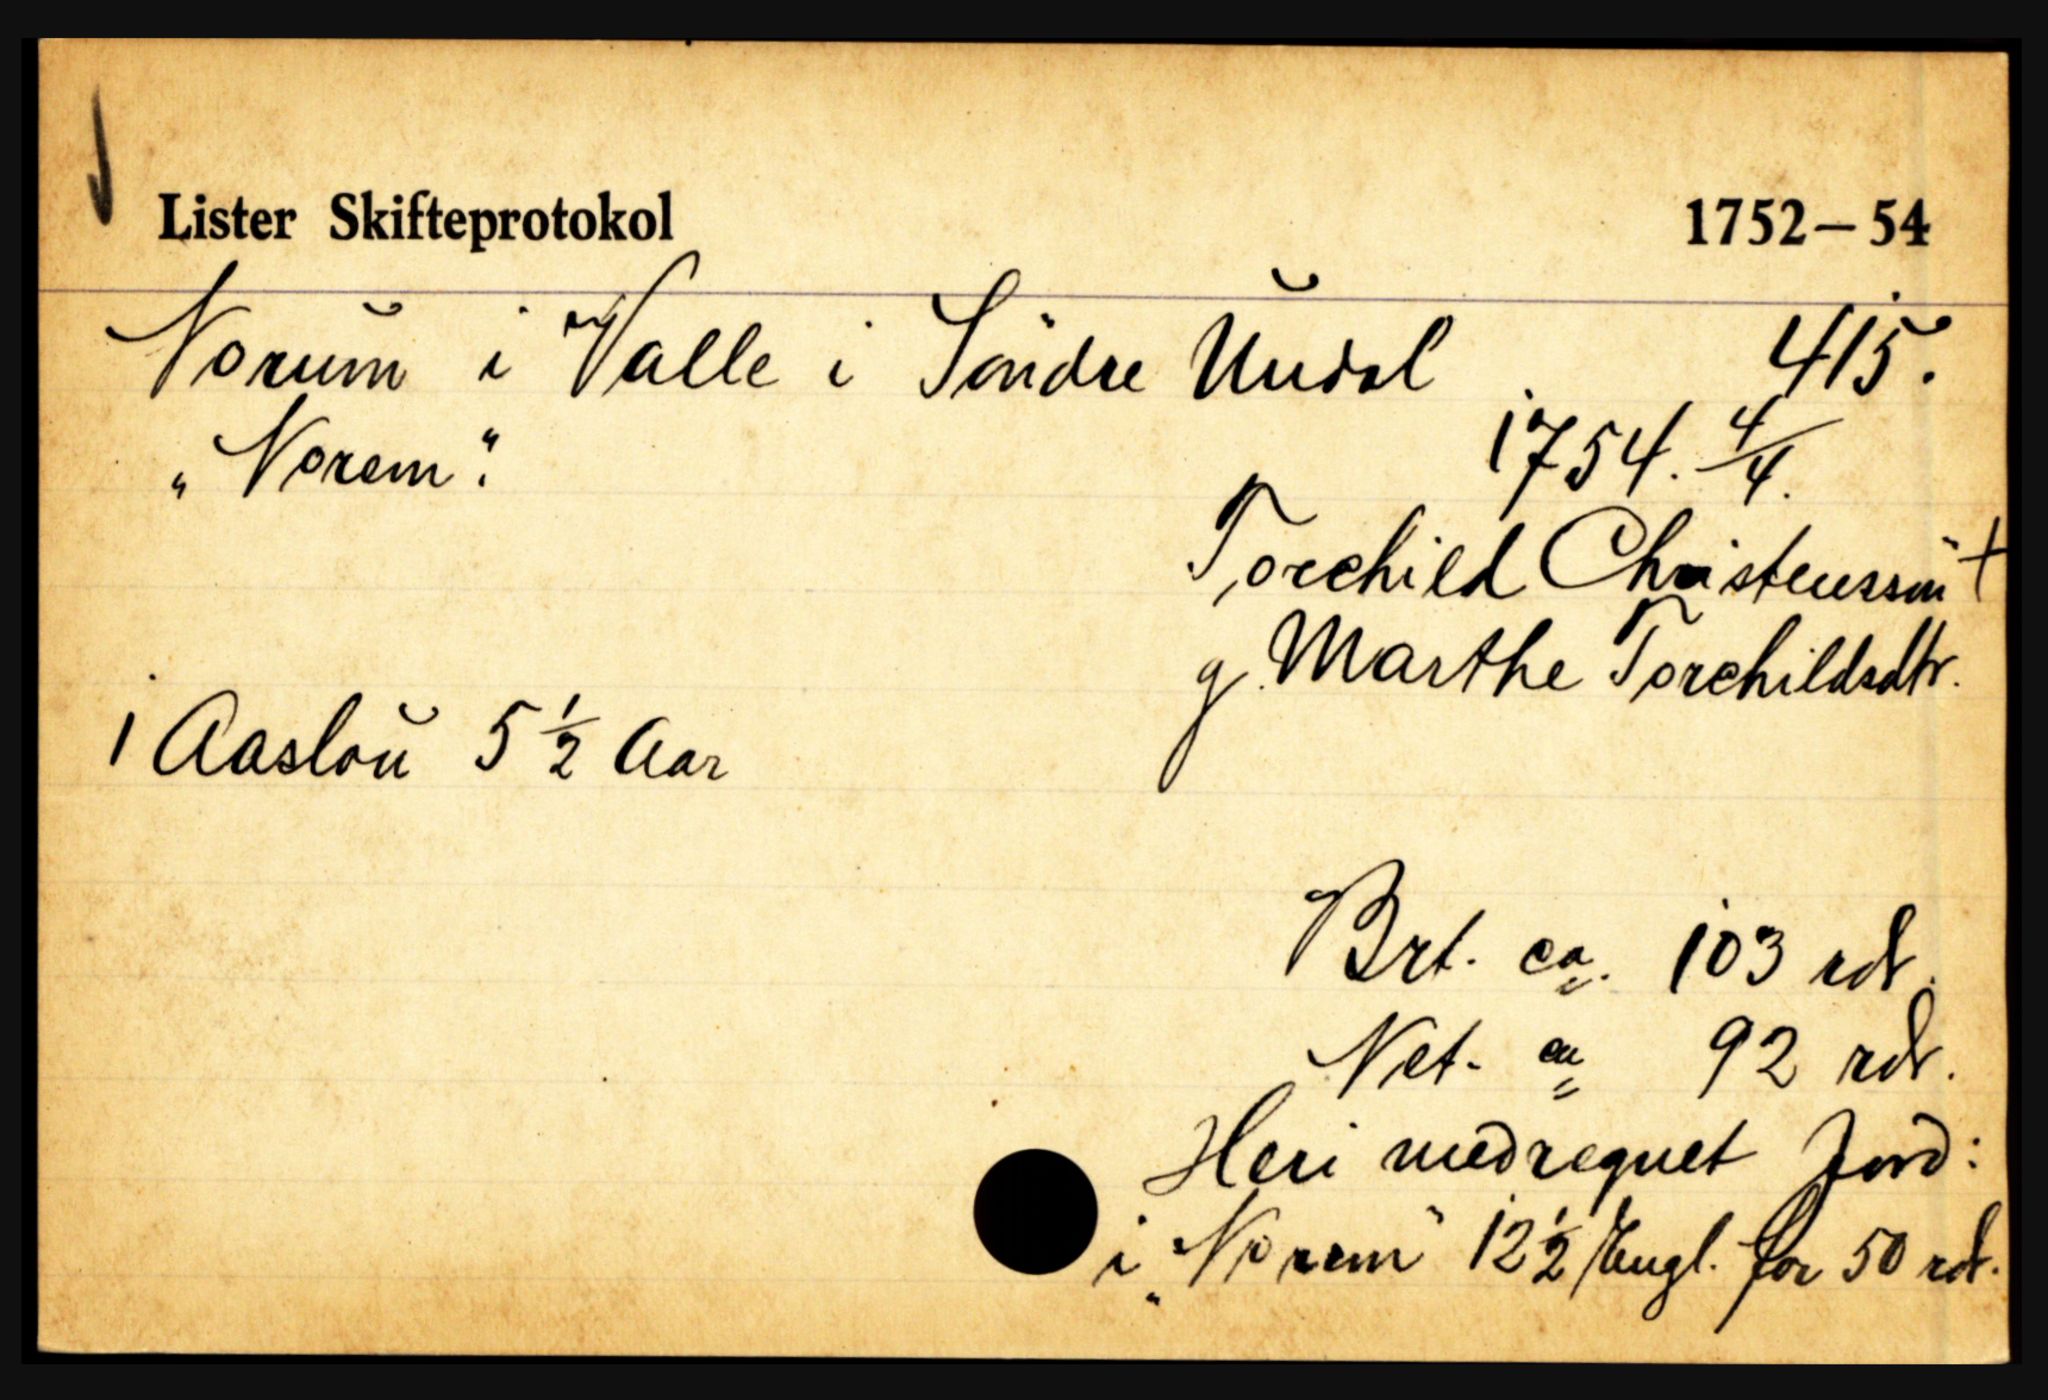 Lister Skifteprotokol 1752-54
Norum i Valle i Söndre Undal 415.
„Norem". 1754. 4/4.
Torchild Christenssön +
g. Marthe Torchildsdtr.
1 Aaslou 5 1/2 Aar
Brt. ca. 103 rdr.
Net. ca 92 rdr.
Heri medregnet Jord:
i „Norem" 12 1/2 Engl. for 50 rdr.